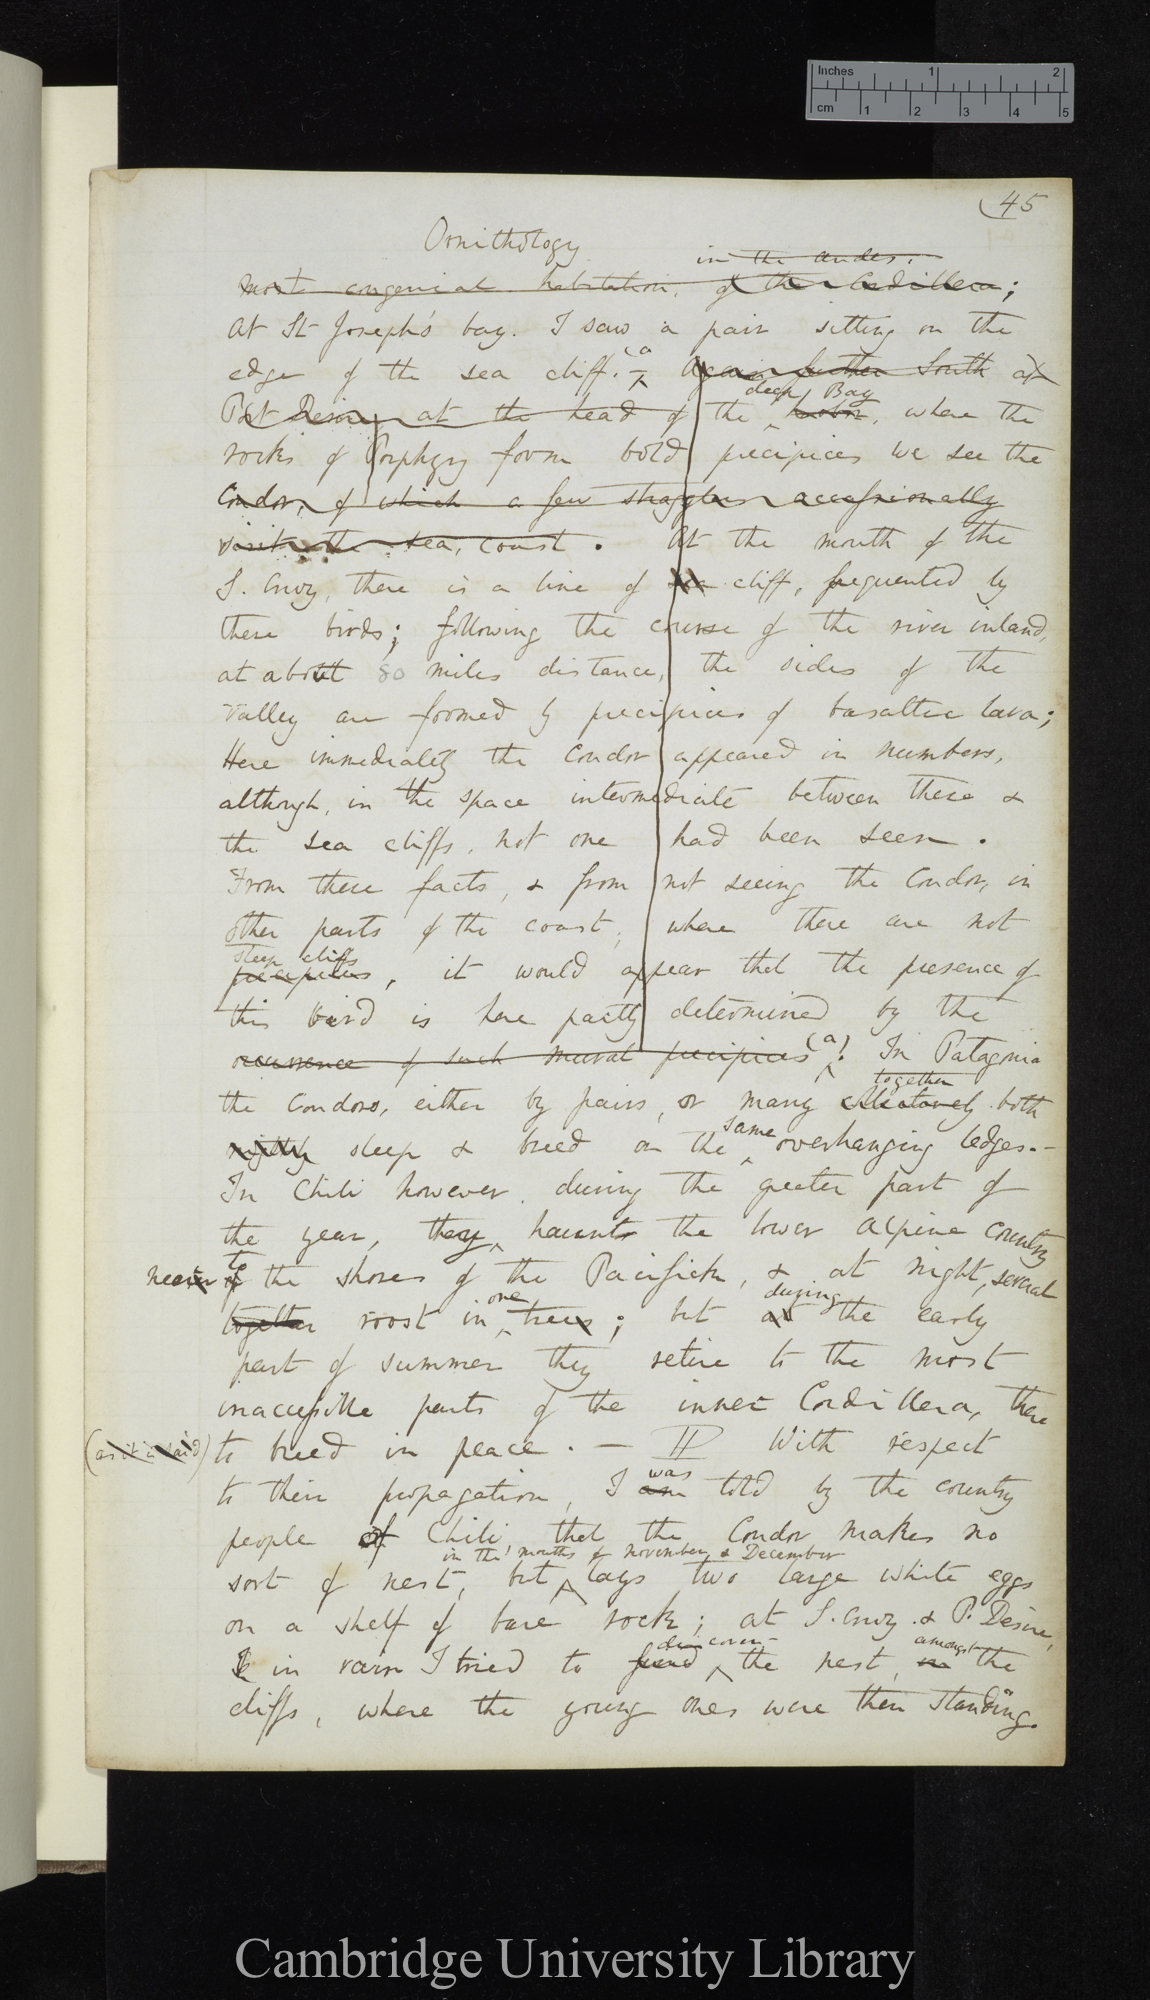 Inches 1 2
cm 1 2 3 4 5
45
Ornithology
in the Andes.
most congenial habitation, of the Cordillera;
At St Joseph's bay. I saw a pair sitting on the
edge of the sea cliff. (a) Again further South at
Port Desire, at the head of the harbor, where the
deep Bay
rocks of Porphyry form bold precipices we see the
Condor, of which a few stragglers accessionally
visit the sea, coast. At the mouth of the
S. Cruz, there is a line of sea cliff, frequented by
these birds; following the course of the river inland,
at about 80 miles distance, the sides of the
valley are formed by precipices of basaltic lava;
Here immediately the Condor appeared in numbers,
although, in the space intermediate between these &
the sea cliffs, not one had been seen.
From these facts, & from not seeing the Condor, in
other parts of the coast, where there are not
steep cliffs
precipices, it would appear that the presence of
this bird is here partly determined by the
occurrence of such mural precipices (a). In Patagonia
the Condors, either by pairs, or many together both
nightly sleep & breed on the same overhanging ledges.—
In Chili however, during the greater part of
the year, they haunt the lower alpine country
near to the shores of the Pacifick, & at night, several
together roost in one tree; but at during the early
part of summer they retire to the most
inaccessible parts of the inner Cordillera, there
(as it is said) to breed in peace. — With respect
to their propagation, I am was told by the country
people of Chili, that the Condor makes no
in the months of November & December
sort of nest, but lays two large white eggs
on a shelf of bare rock; at S. Cruz & P. Desire,
I in vain I tried to found discover the nest, in amongst the
cliffs, where the young ones were then standing.
Cambridge University Library